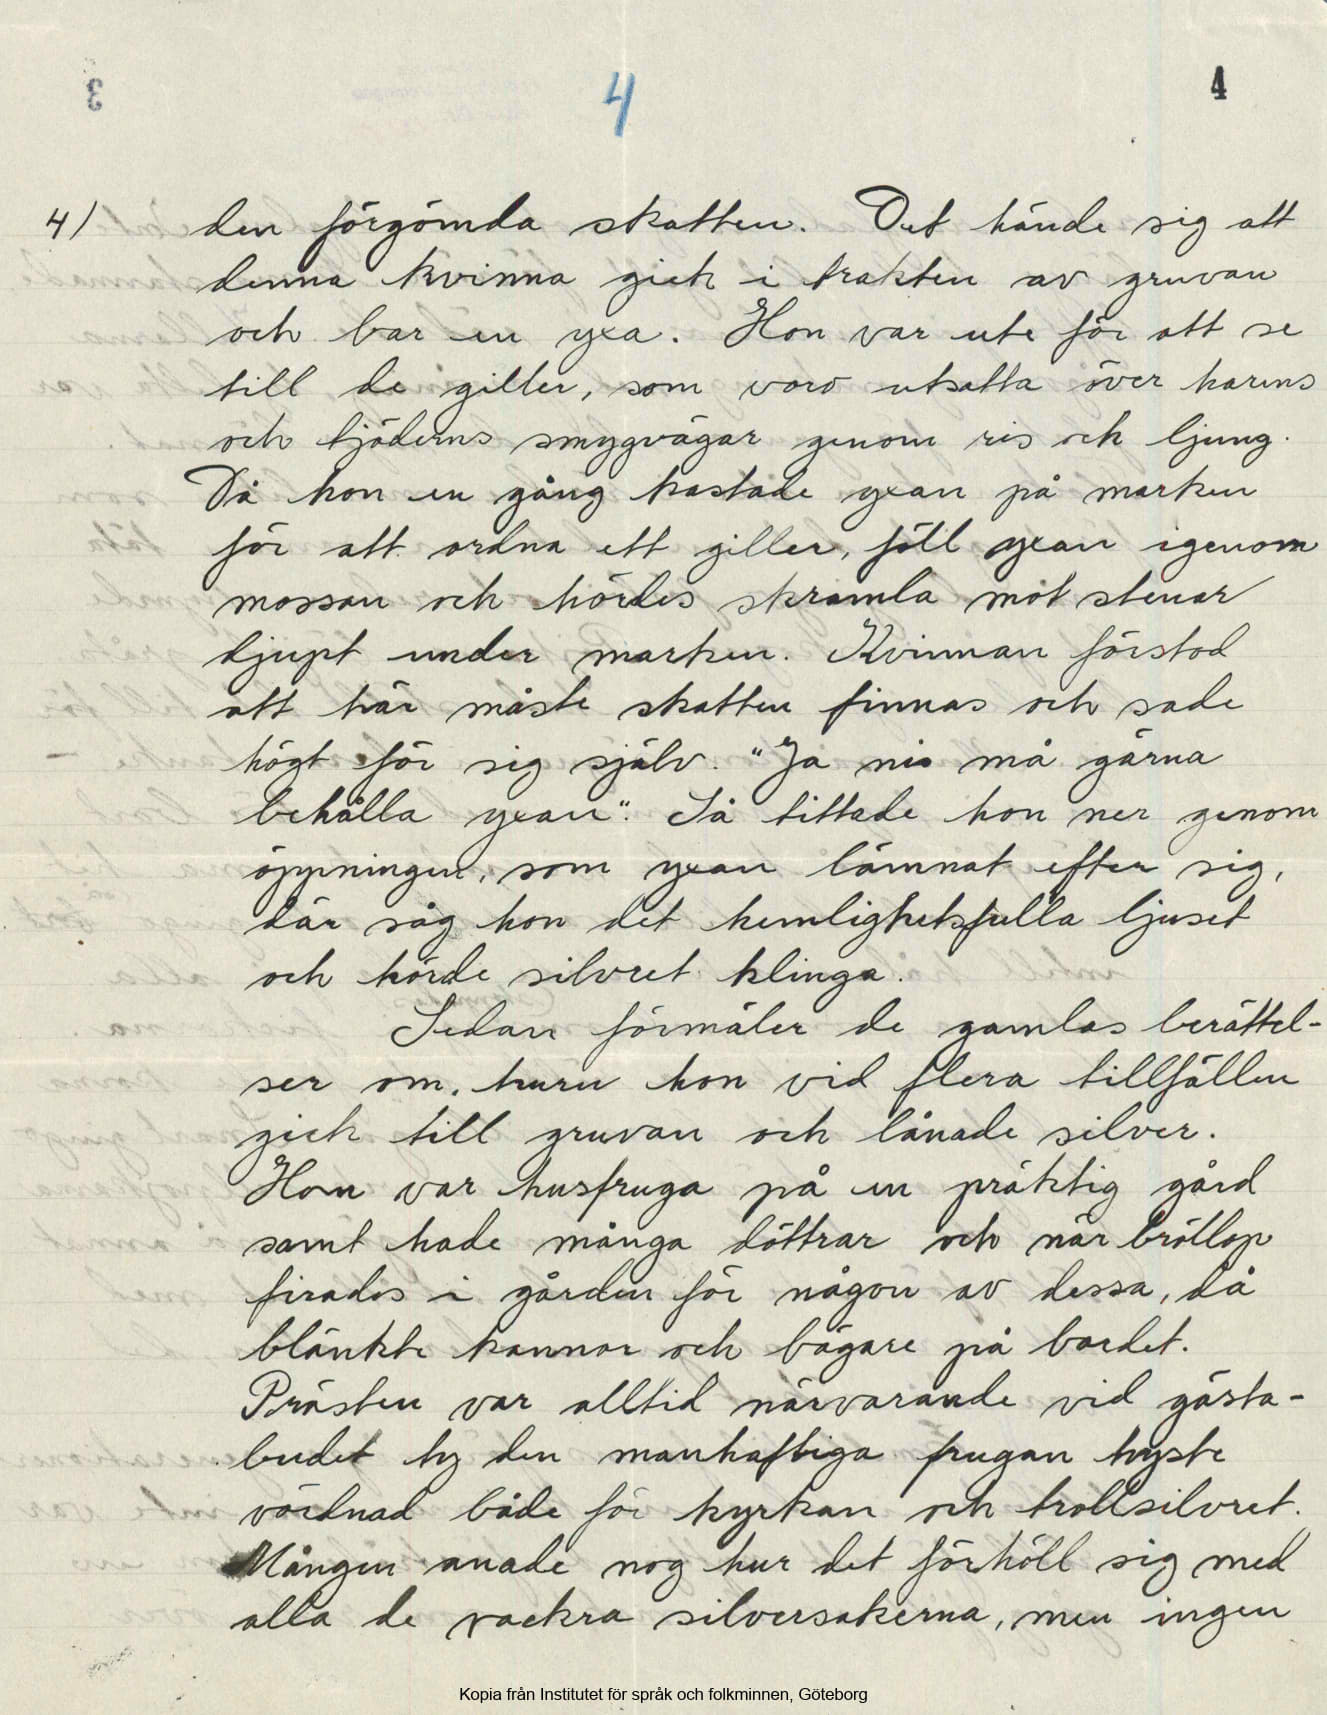 4
4
4/
den förgömda skatten. Det hände sig att
denna kvinna gick i trakten av gruvan
och bar en yxa. Hon var ute för att se
till de giller, som voro utsatta över harens
och tjäderns smygvägar genom ris och ljung.
Då hon en gång kastade yxan på marken
för att ordna ett giller, föll yxan igenom
mossan och hördes skramla mot stenar
djupt under marken. Kvinnan förstod
att här måste skatten finnas och sade
högt för sig själv. "Ja ni må gärna
behålla yxan". Så tittade hon ner genom
öppningen, som yxan lämnat efter sig,
där såg hon det hemlighetsfulla ljuset
och hörde silvret klinga.
Sedan förmäler de gamlas berättel-
ser om, huru hon vid flera tillfällen
gick till gruvan och lånade silver.
Hon var husfruga på en präktig gård
samt hade många döttrar och när bröllop
firades i gården för någon av dessa, då
blänkte kannor och bägare på bordet.
Prästen var alltid närvarande vid gästa-
budet ty den manhaftiga frugan hyste
vördnad både för kyrkan och trollsilvret.
Mången anade nog hur det förhöll sig med
alla de vackra silversakerna, men ingen
Kopia från Institutet för språk och folkminnen, Göteborg